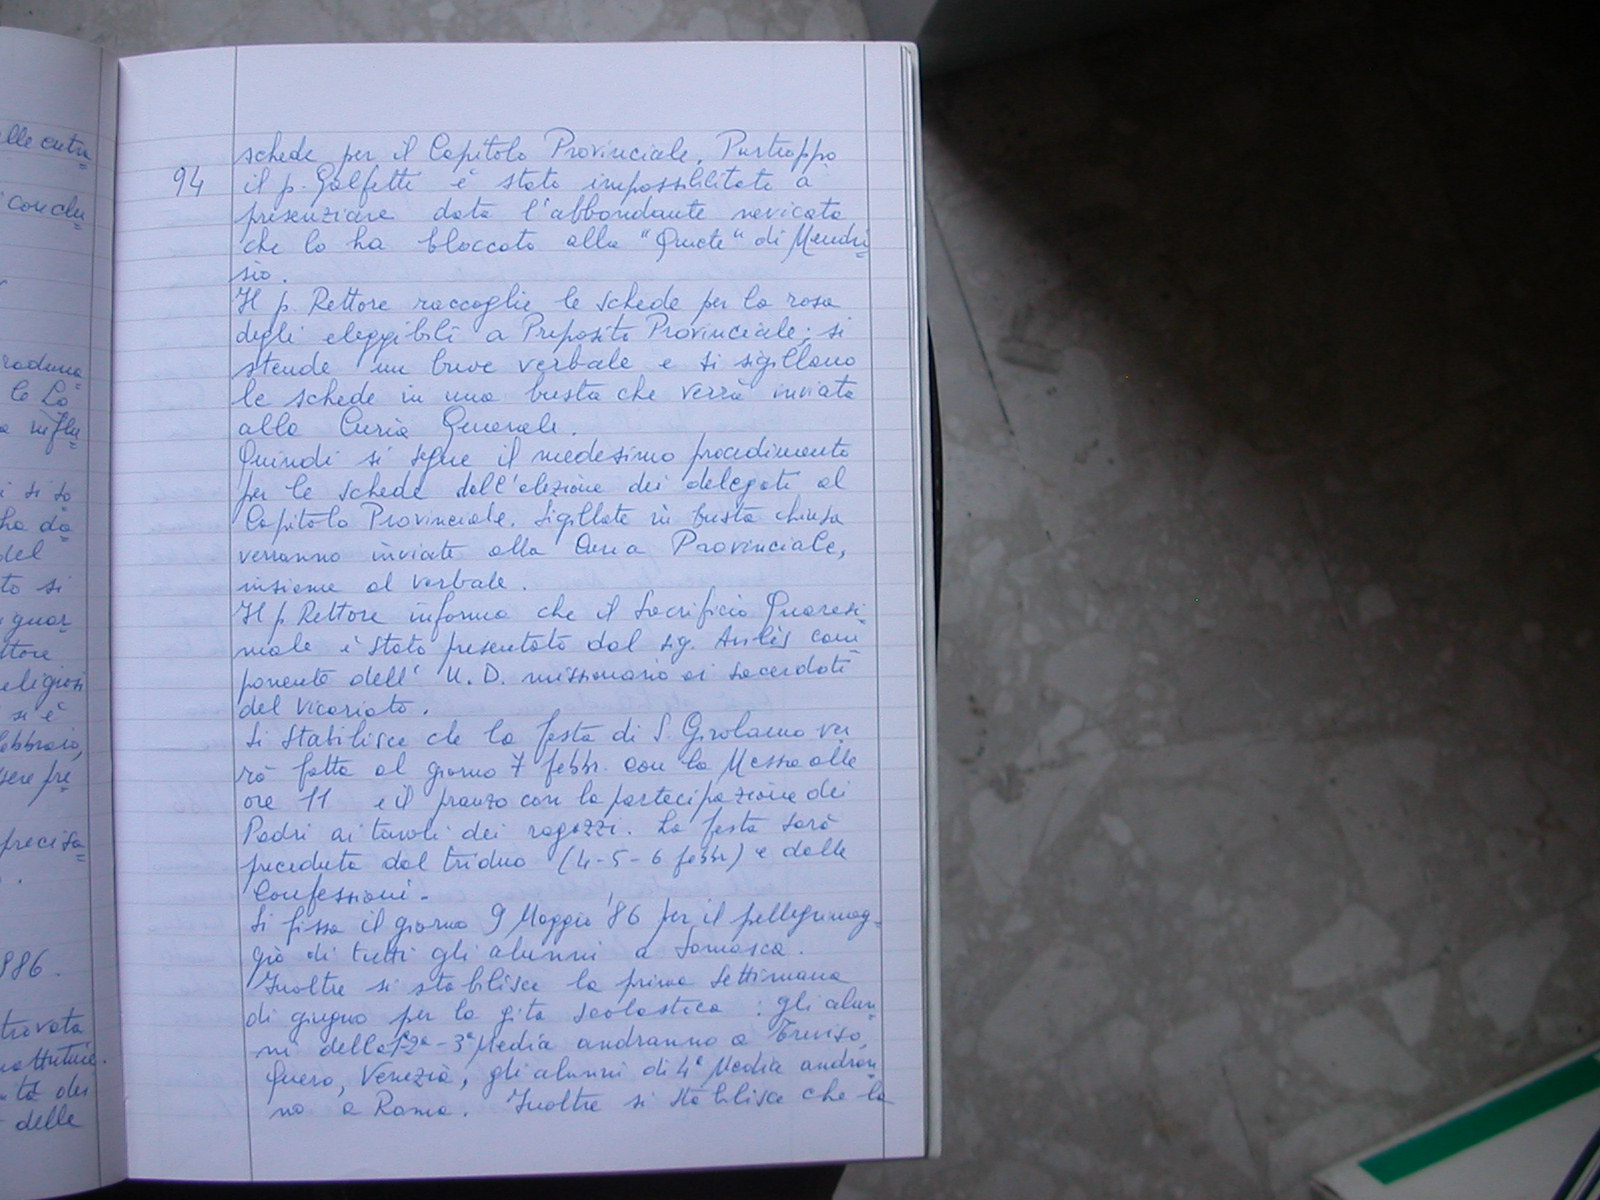 lle entra
conclu
raduna
le Lo
a influ
i si so
ha da
del
to si
guar
ttore
eligiosi
si è
ebbraio,
sere pre
precisa
986.
trovata
delle
schede per il Capitolo Provinciale. Purtroppo
94
il p. Galfetti è stato impossibilitato a
presenziare data l'abbondante nevicata
che lo ha bloccato alla "Quiete" di Mendri
sio.
Il p. Rettore raccoglie le schede per la rosa
degli eleggibili a Preposito Provinciale; si
stende un breve verbale e si sigillano
le schede in una busta che verrà inviata
alla Curia Generale.
Quindi si segue il medesimo procedimento
per le schede dell'elezione dei delegati al
Capitolo Provinciale. Sigillate in busta chiusa
verranno inviate alla Curia Provinciale,
insieme al verbale.
Il p. Rettore informa che il Sacrificio Quaresi
male è stato presentato dal sig. com
ponente dell' U. D. missionario ai sacerdoti
del Vicariato.
Si stabilisce che la festa di S. Girolamo ver
rà fatta al giorno 7 febbr. con la Messa alle
ore 11 e il pranzo con la partecipazione dei
Padri ai tavoli dei ragazzi. La festa sarà
preceduta dal triduo (4-5-6 febbr) e dalle
Confessioni.
Si fissa il giorno 9 Maggio '86 per il pellegrinag-
gio di tutti gli alunni a Somasca.
Inoltre si stabilisce la prima settimana
di giugno per la gita scolastica: gli alun
ni della 1ª2ª-3ª Media andranno a Treviso,
Quero, Venezia, gli alunni di 4ª Media andran
no a Roma. Inoltre si stabilisce che la